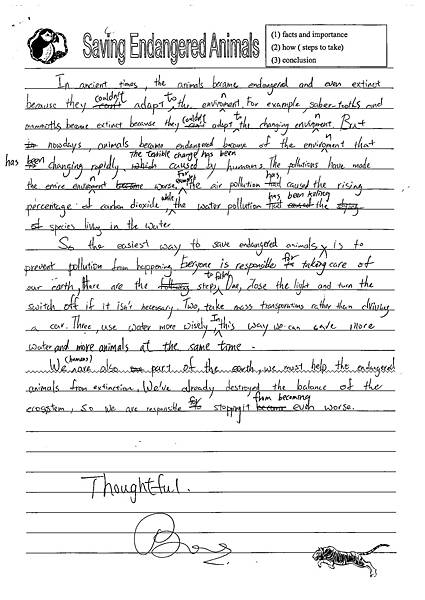 Saving Endangered Animals
(1) facts and importance
(2) how ( steps to take)
(3) conclusion
In ancient times, the animals became endangered and even extinct
couldn't to n
because they adapt the enviroment. For example, saber-tooths and
couldn't to n
mammoths became extinct because they adapt the changing enviroment. But
n
nowadays, animals became endangered because of the enviroment that
The terrible change has been
has been changing rapidly, which caused by humans. The pollutions have made
n For example has
the entire enviroment became worse, the air pollution had caused the rising
while has been killing
percentage of carbon dioxide, the water pollution had caused the dying
of species living in the water
So the easiest way to save endangered animals, is to
for
prevent pollution from happening Everyone is responsible taking care of
to follow
our earth, Here are the following steps, One, close the light and turn the
switch off if it isn't necessary. Two, take mass transporations rather than driving
In
a car. Three, use water more wisely, this way we can save more
water and more animals at the same time.
(humans)
We are also part of the earth, we must help the endangered
animals from extinction. We've already destroyed the balance of the
for from becoming
ecosystem, so we are responsible stopping it become even worse.
Thoughtful.